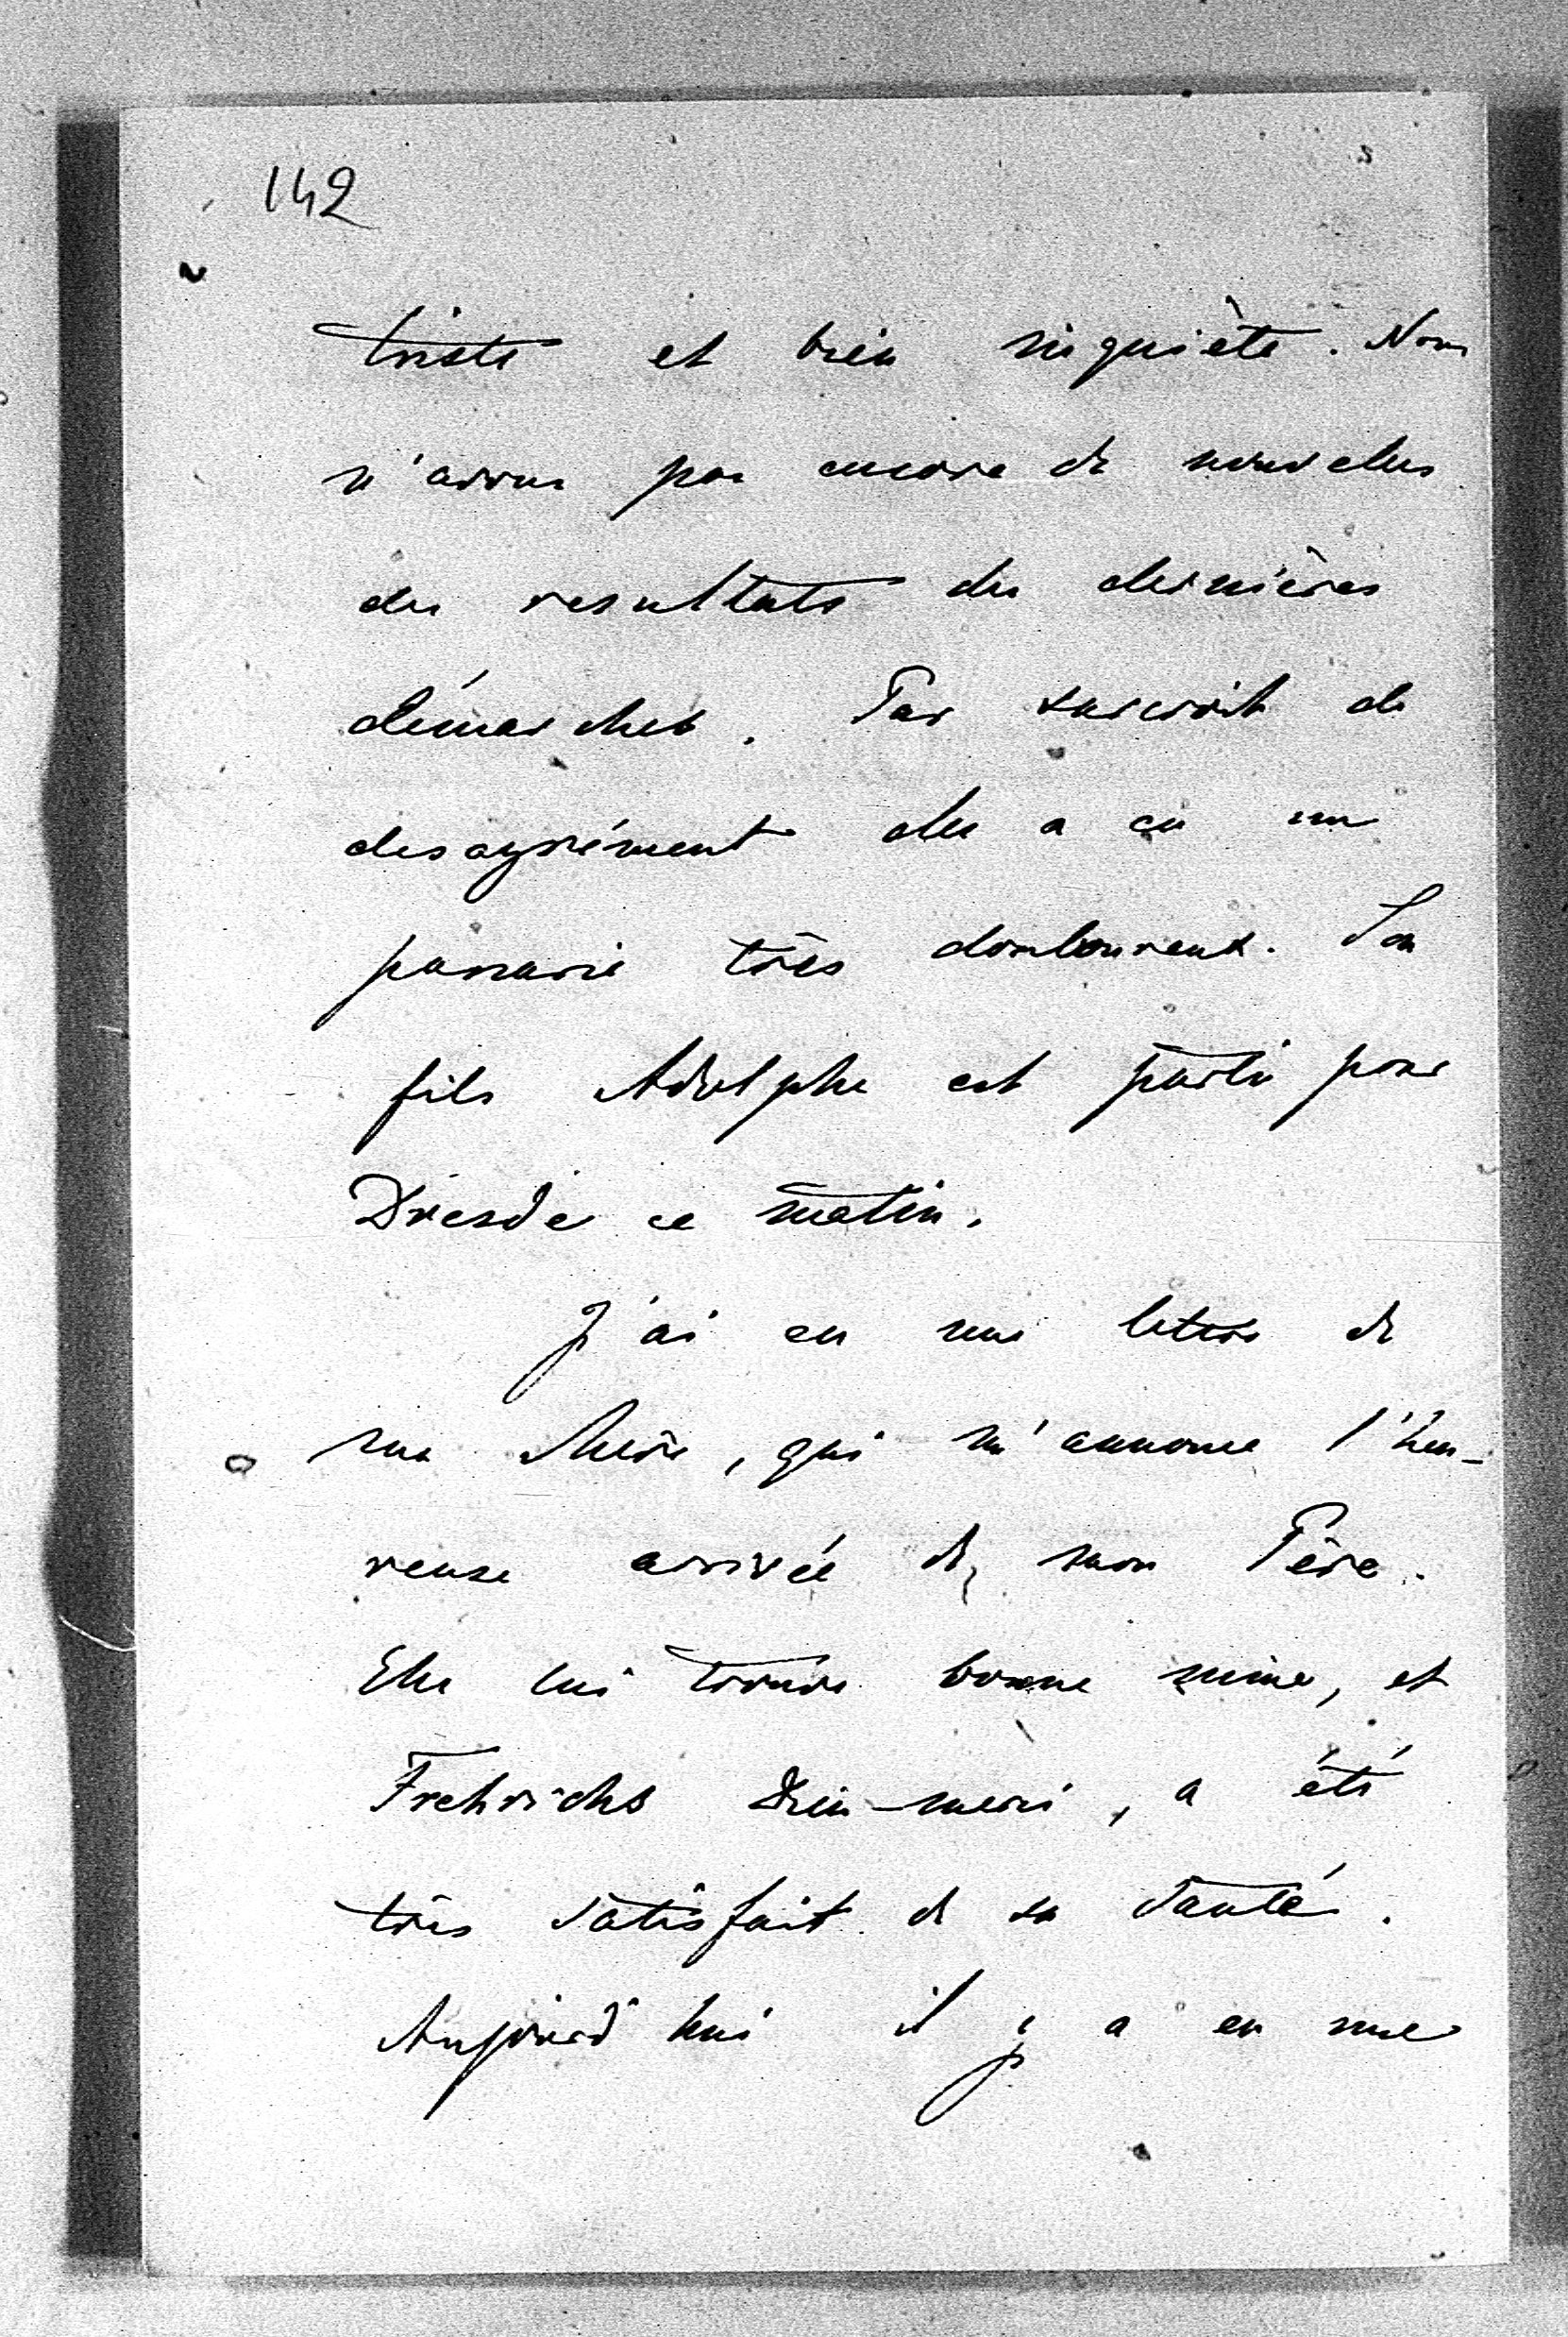 142
triste et bien inquiète. Nous
n'avons pas encore de nouvelles
des resultats des dernières
démarches. Par surcroit de
desagrément elle a eu un
panaris très douloureux. Son
fils Adolphe est parti pour
Dresde ce matin.
J'ai eu une lettre de
ma Mère, qui m'annonce l'heu-
reuse arrivée de mon Père.
Elle lui trouve bonne mine, et
Frehrichs Dieu-merci, a été
très satisfait de sa santé.
Aujourd'hui il y a eu une